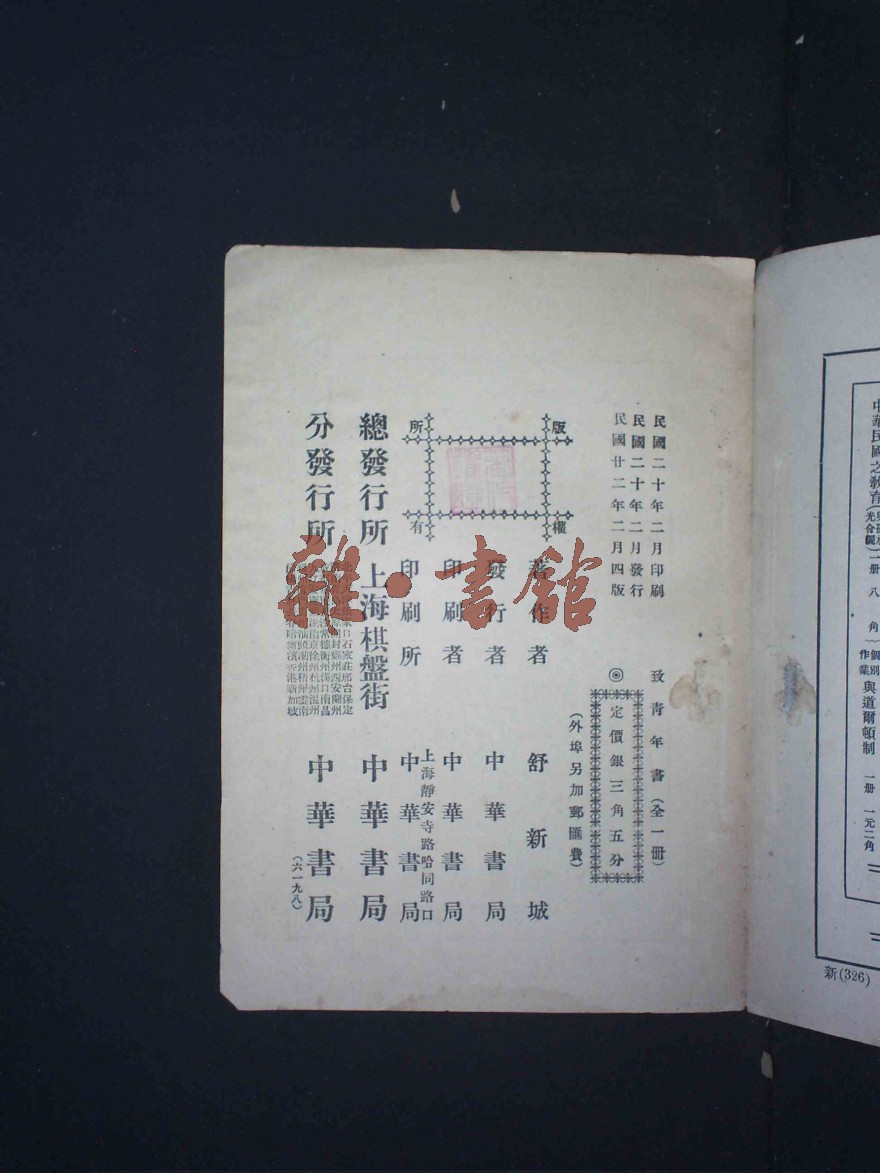 民國二十年二月印刷
民國二十年二月發行
民國廿二年二月四版
致青年書（全一册）
◎定價銀三角五分
（外埠另加郵匯費）
版權所有
著作者 舒新城
發行者 中華書局
印刷者 中華書局
上海靜安寺路哈同路口
印刷所 中華書局
總發行所 上海棋盤街 中華書局
分發行所 中華書局
（六一九八）
雜·書館
中華民國之教育
一册 八角
個別作業與道爾頓制 一册 一元二角
新(326)